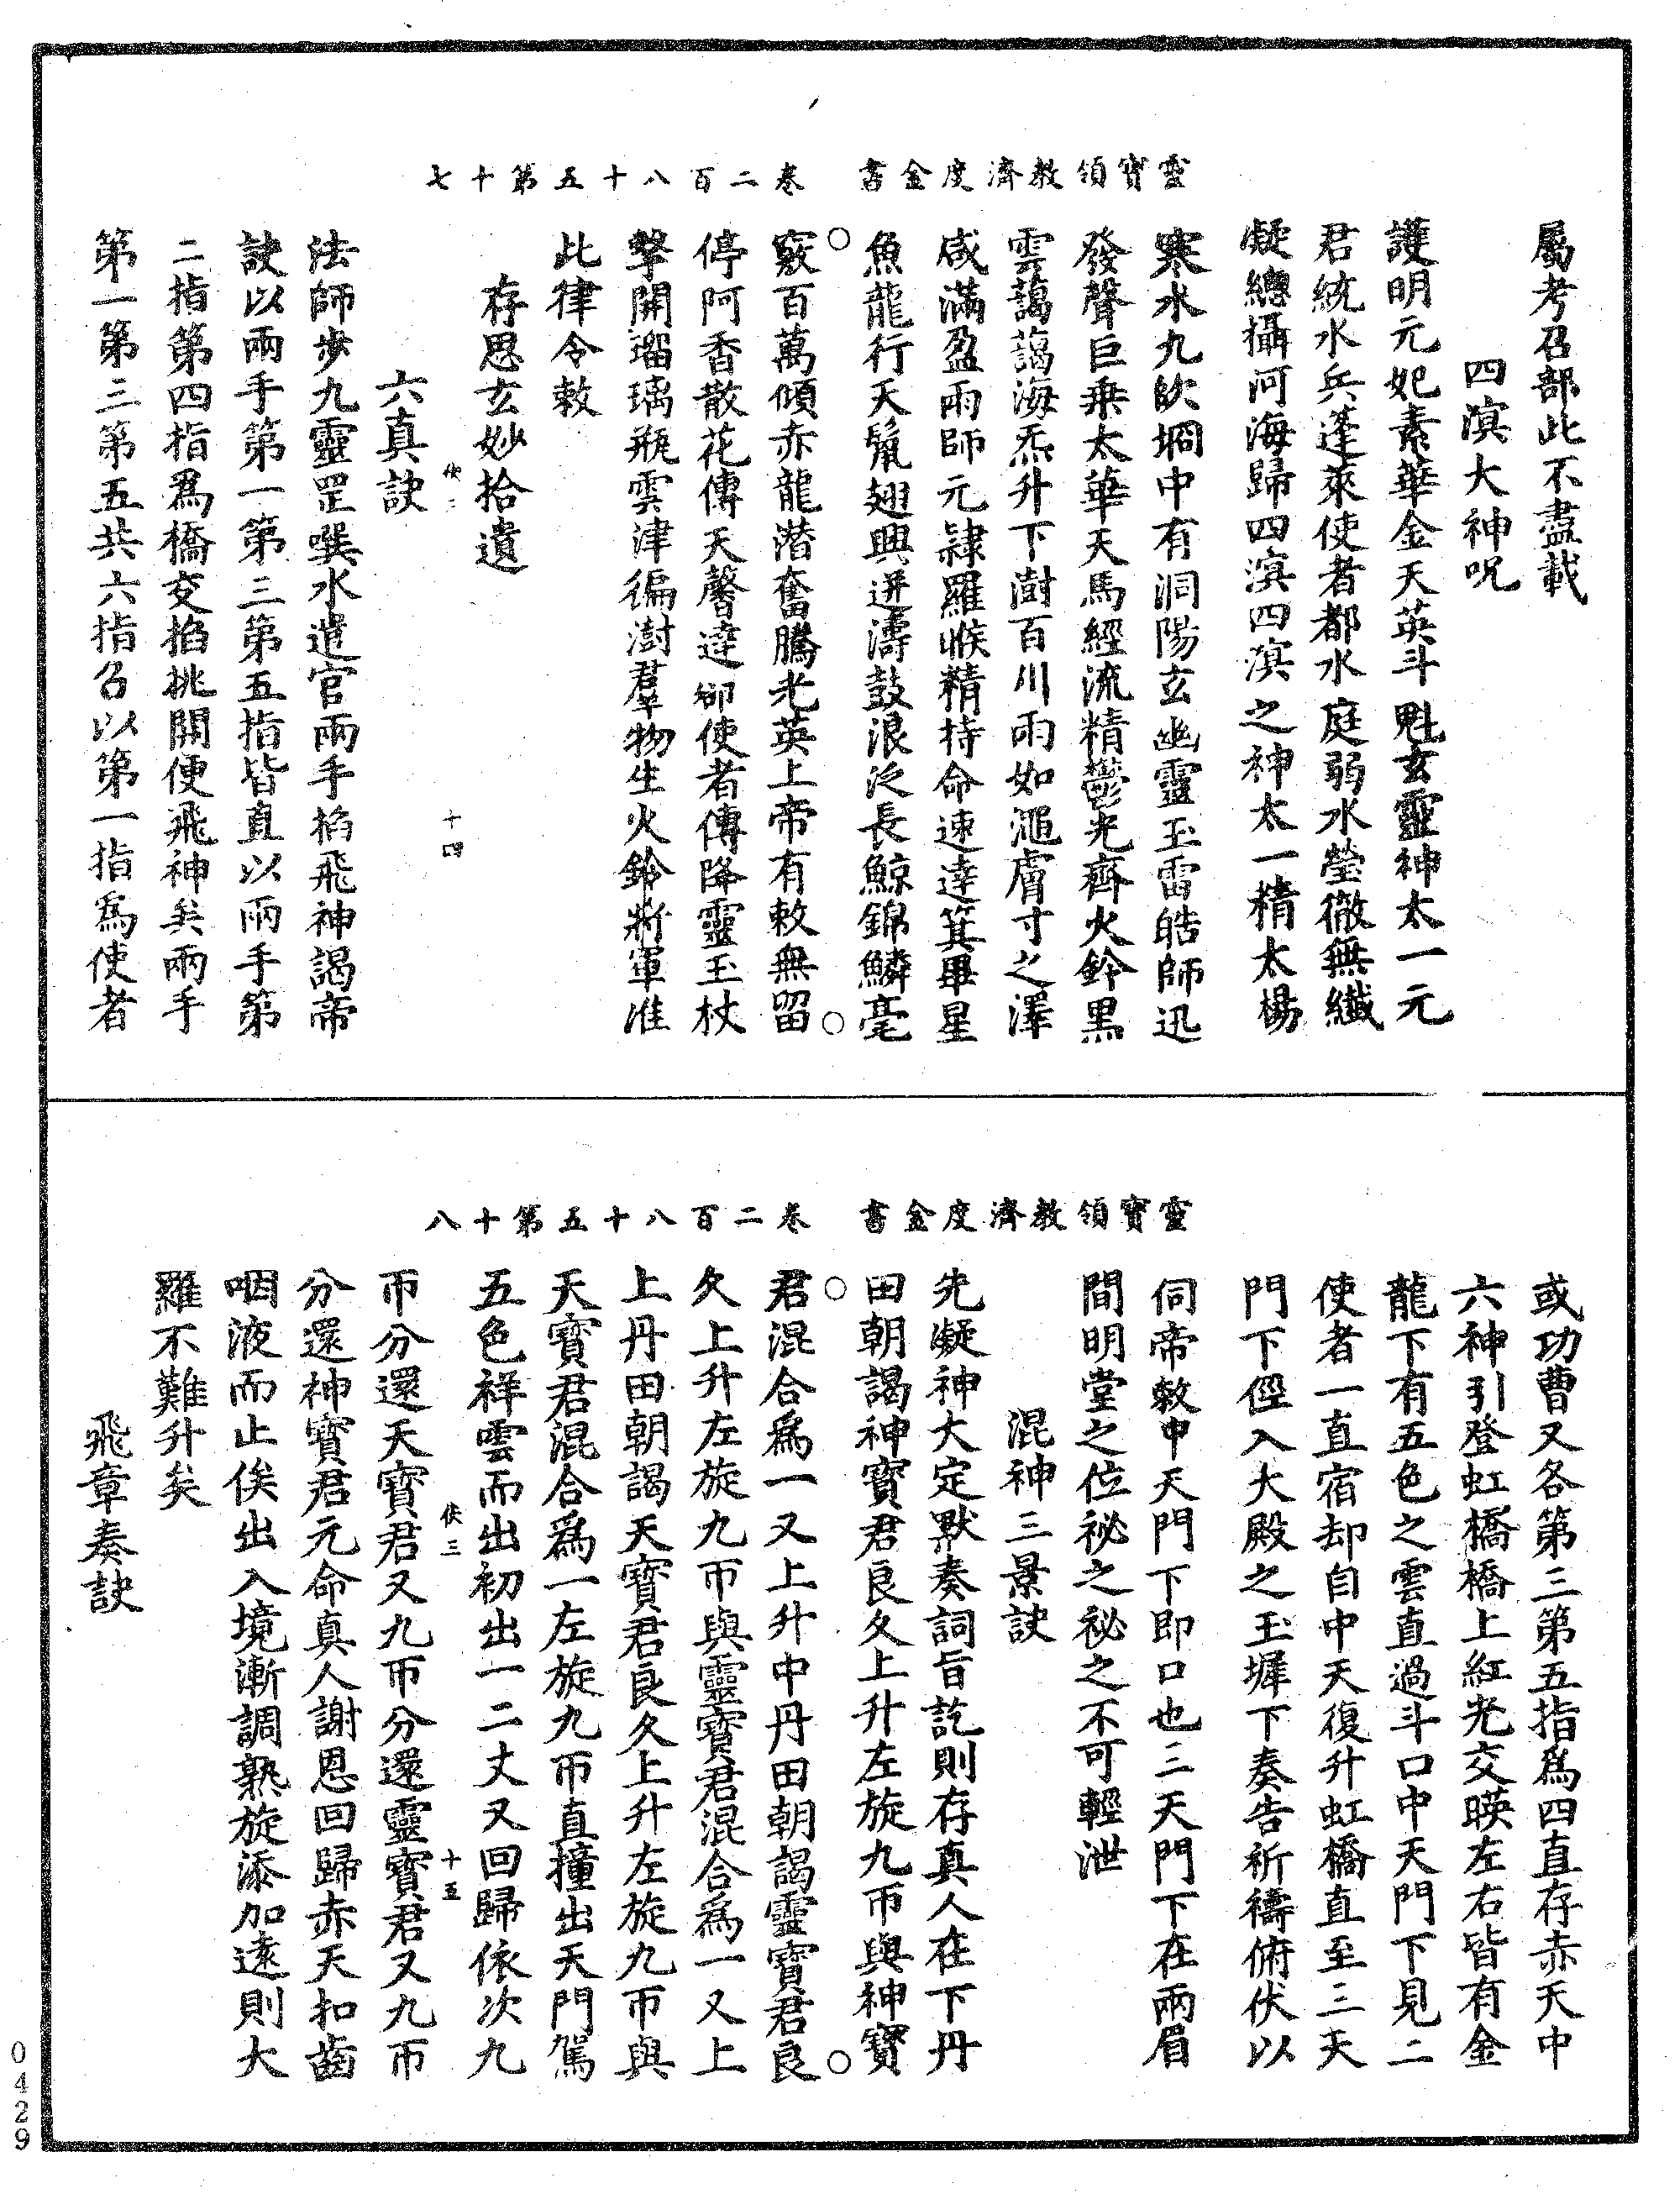 靈寶領教濟度金書　卷二百八十五第十七
屬考召部此不盡載
四溟大神呪
護明元妃素華金天英斗魁玄靈神太一元
君統水兵蓬萊使者都水庭弱水瑩徹無纖
凝總攝河海歸四溟四溟之神太一精太楊
寒水九欻堈中有洞陽玄幽靈玉雷皓師迅
發聲巨乗太華天馬經流精鬱光齊火鈴黒
雲藹藹海炁升下澍百川雨如澠膚寸之澤
咸滿盈雨師元隷羅睺精持命速達箕畢星
魚龍行天鬣翅興迸濤鼓浪泛長鯨錦鱗毫
竅百萬傾赤龍潛奮騰光英上帝有敕無留
停阿香散花傳天馨達卻使者傳降靈玉杖
擊開瑠璃瓶雲津徧澍羣物生火鈴將軍准
此律令敕
存思玄妙拾遺
俠三　十四
六真訣
法師步九靈罡噀水遣官兩手掐飛神謁帝
訣以兩手第一第三第五指皆直以兩手第
二指第四指爲橋交掐挑開便飛神矣兩手
第一第三第五共六指召以第一指爲使者
靈寶領教濟度金書　卷二百八十五第十八
或功曹又各第三第五指爲四直存赤天中
六神引登虹橋橋上紅光交暎左右皆有金
龍下有五色之雲直過斗口中天門下見二
使者一直宿却自中天復升虹橋直至三天
門下徑入大殿之玉墀下奏告祈禱俯伏以
伺帝敕中天門下即口也三天門下在兩眉
間明堂之位祕之祕之不可輕泄
混神三景訣
先凝神大定默奏詞旨訖則存真人在下丹
田朝謁神寶君良久上升左旋九帀與神寶
君混合爲一又上升中丹田朝謁靈寶君良
久上升左旋九帀與靈寶君混合爲一又上
上丹田朝謁天寶君良久上升左旋九帀與
天寶君混合爲一左旋九帀直撞出天門駕
五色祥雲而出初出一二丈又回歸依次九
俠三　十五
帀分還天寶君又九帀分還靈寶君又九帀
分還神寶君元命真人謝恩回歸赤天扣齒
咽液而止俟出入境漸調熟旋添加遠則大
羅不難升矣
飛章奏訣
0429